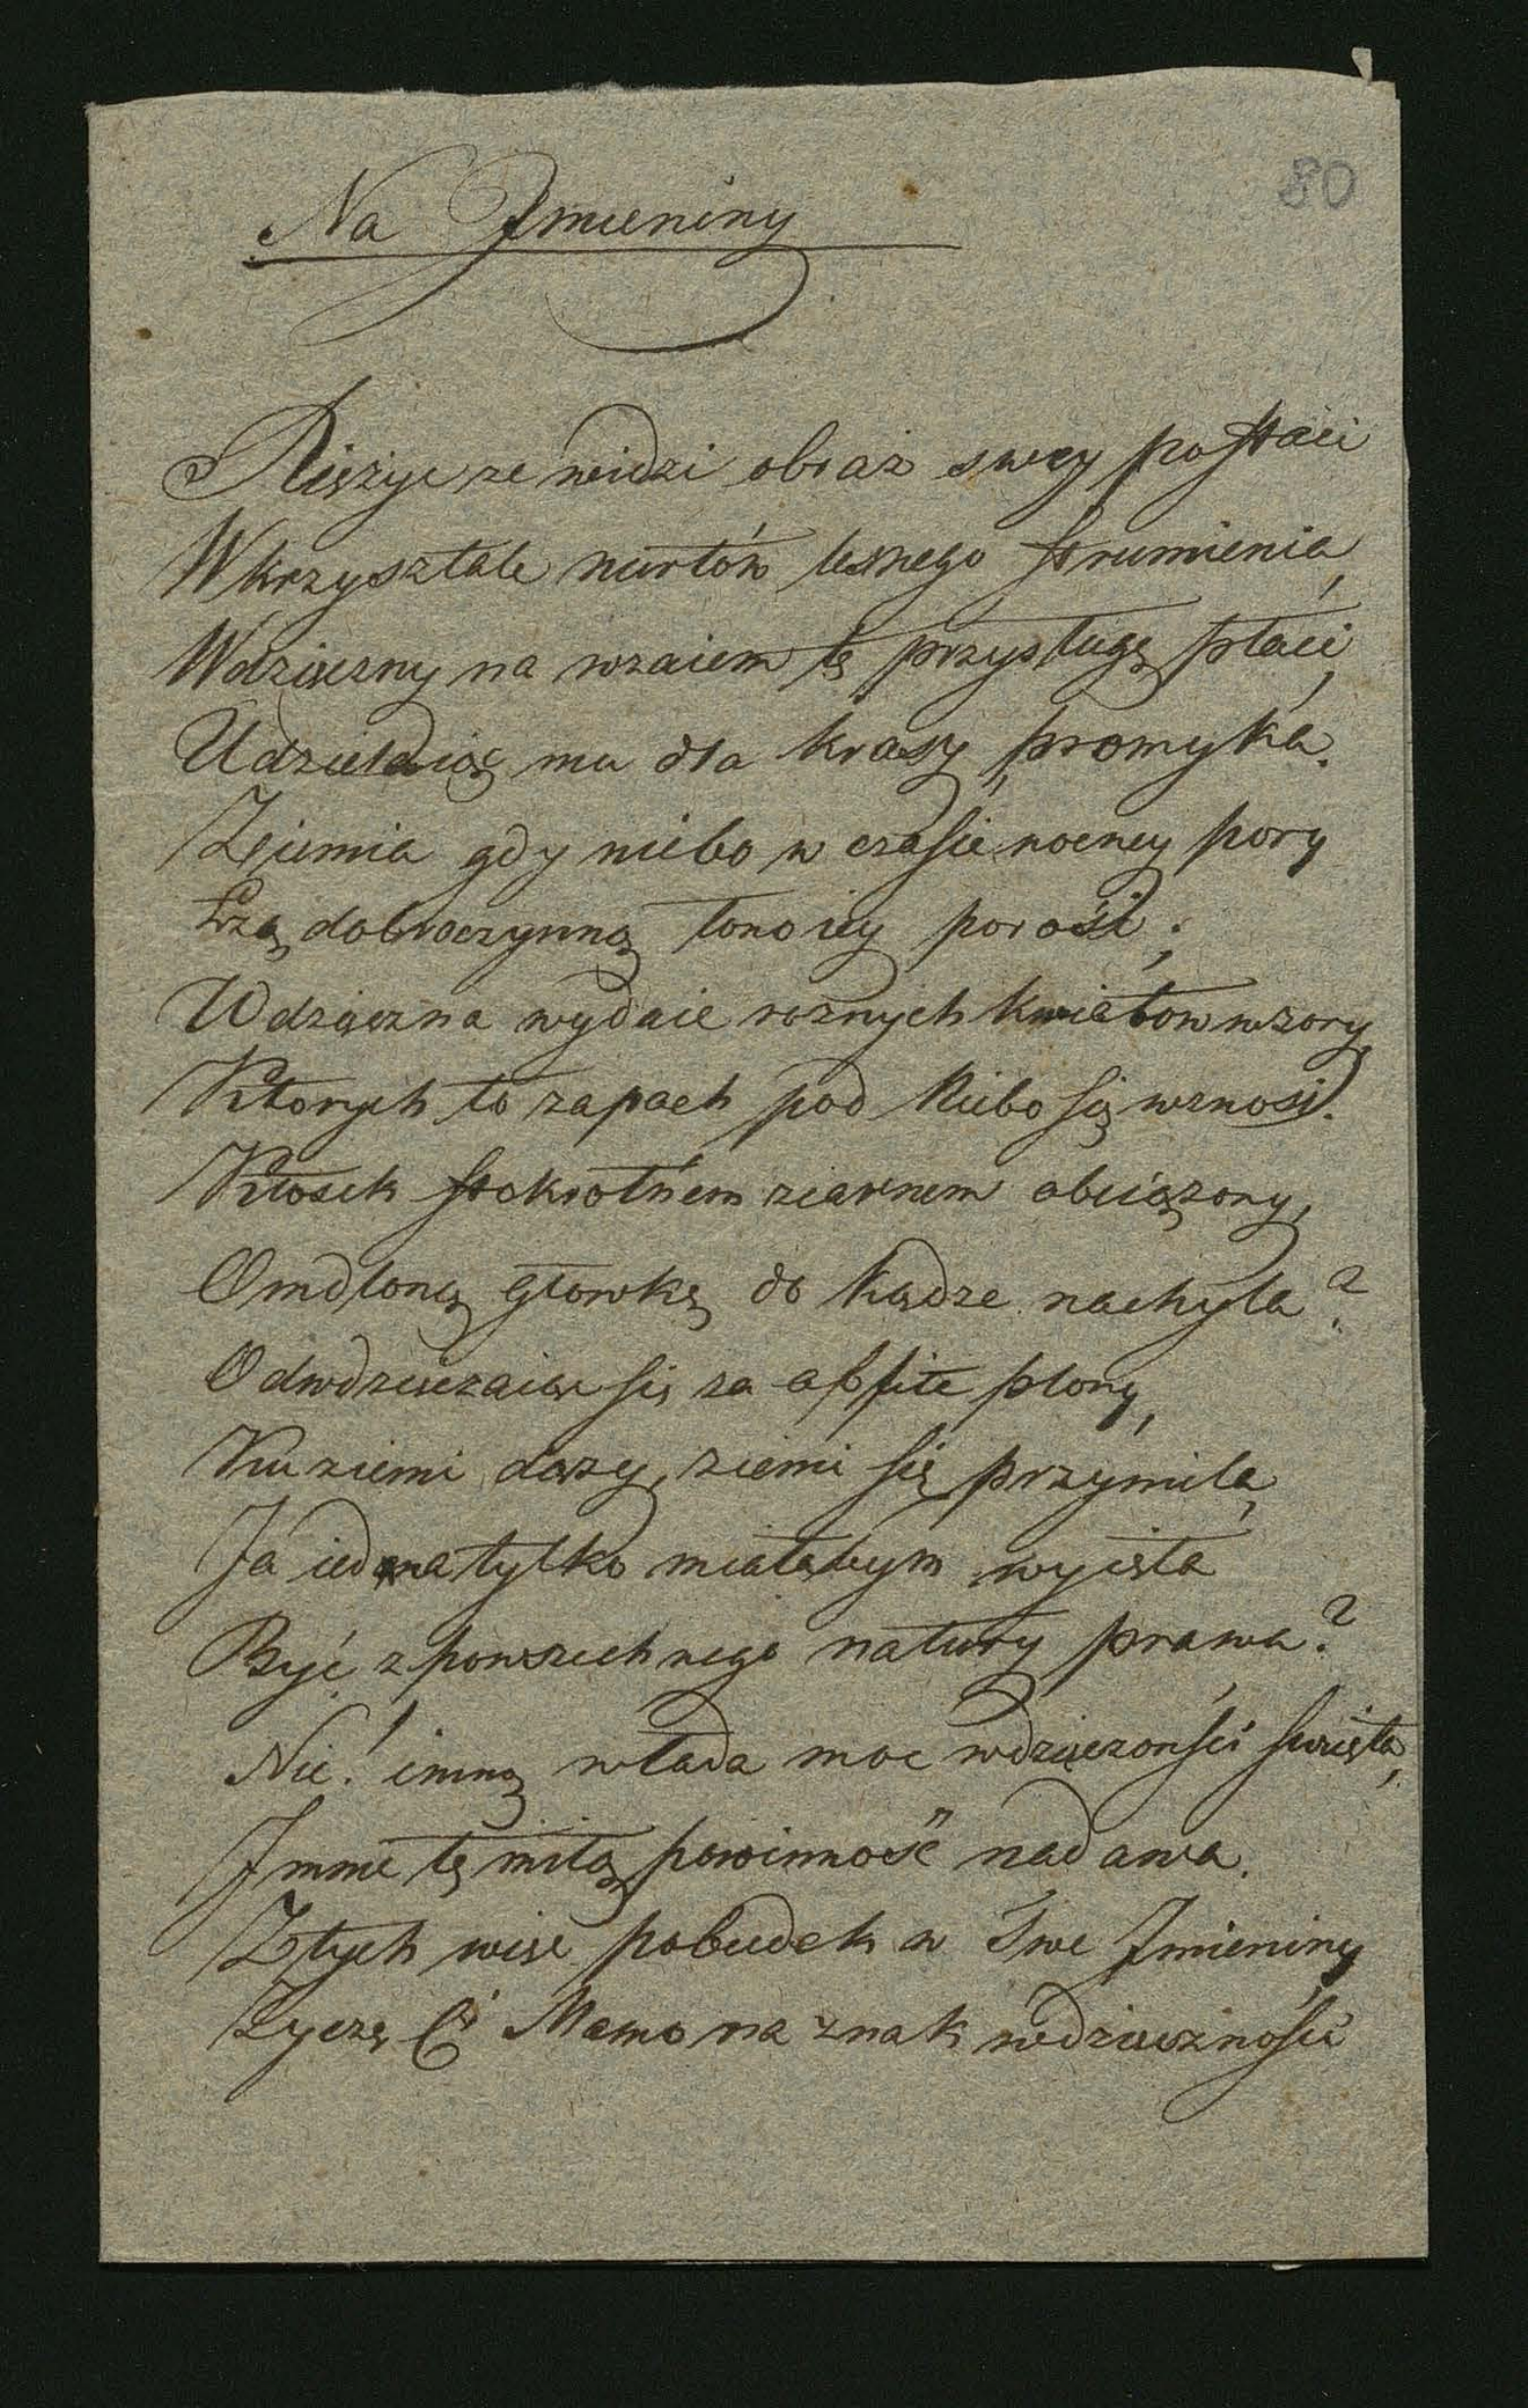 80
Na Jmieniny
Xiężyc ze widzi obraz swey postaci
W krzysztale nurtów lesnego strumienia,
Wdzięczny na wzaiem tę przysługę płaci,
Udzielaiąc mu dla krasy promyka.
Ziemia gdy niebo w czasie nocney pory
Łzą dobroczynną łono iey porosi;
Wdzięczna wydaie rożnych kwiatow wzory,
Ktorych to zapach pod Niebo się wznosi.
Kłosek stokrotnem ziarnem obciążony,
Omdloną głowkę do kądze nachyla?
Odwdzięczaiąc się za obfite plony,
Ku ziemi dąży, ziemi się przymila,
Ja iedna tylko miałabym wyięta
Być z powszechnego natury prawa?
Nie! inną włada moc wdzięcznosci swięta,
J mnie tę miłą powinność nadawa.
Z tych więc pobudek w Twe Jmieniny
Życzę Ci Mamo na znak wdzięcznosci